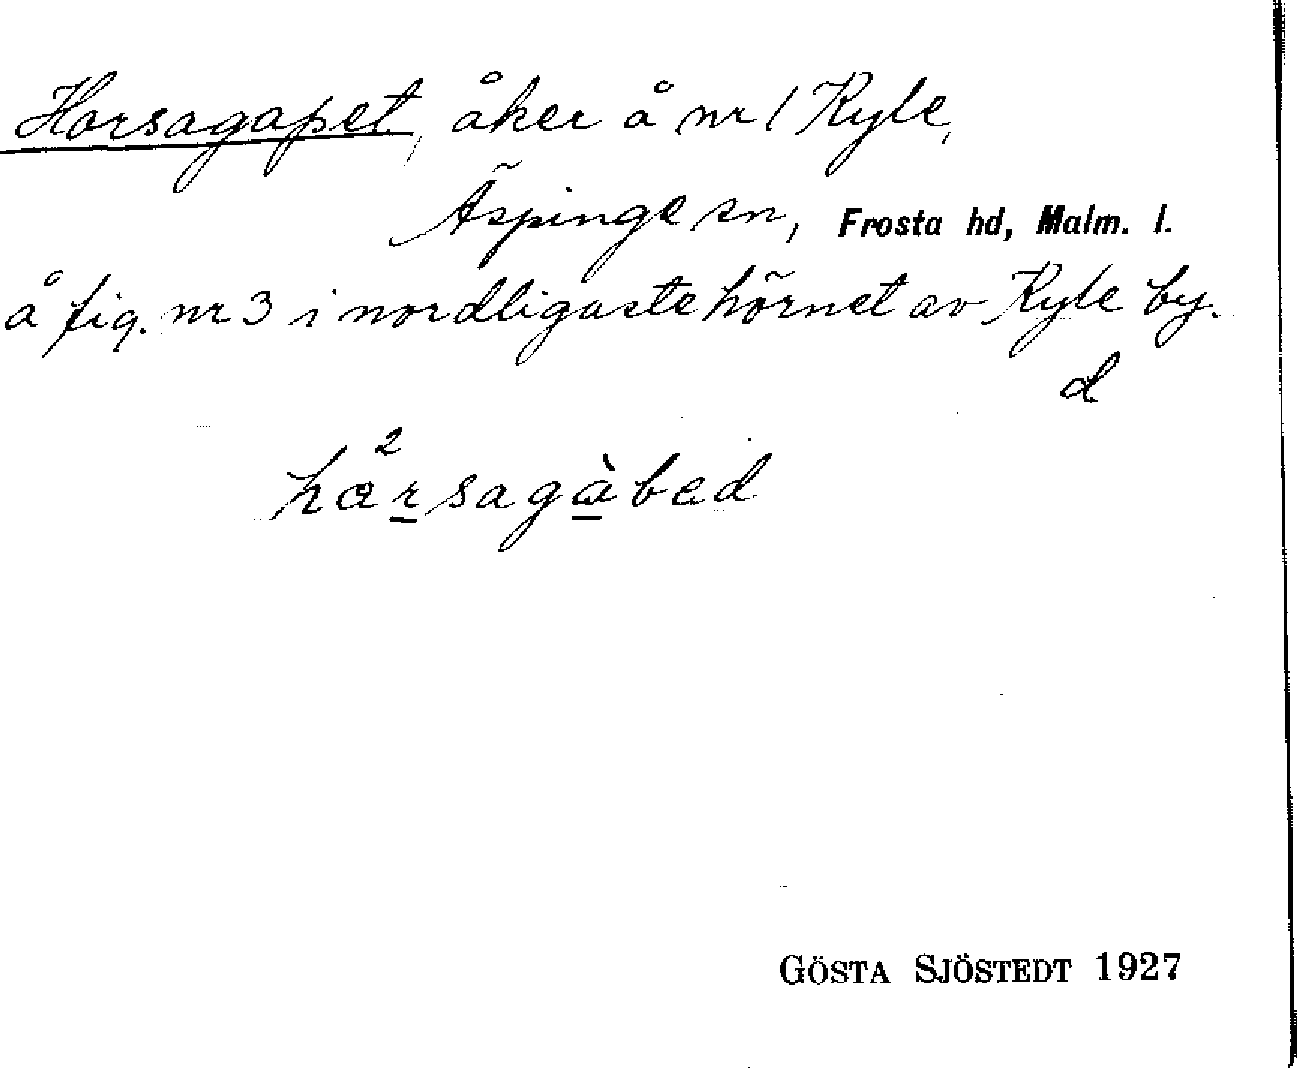 Horsagapet, åker å nr 1 Kyle,
Äspinge sn, Frosta hd, Malm. l.
å fig. nr 3 i nordligaste hörnet av Kyle by.
d
hår²sagàbed
GÖSTA SJÖSTEDT 1927